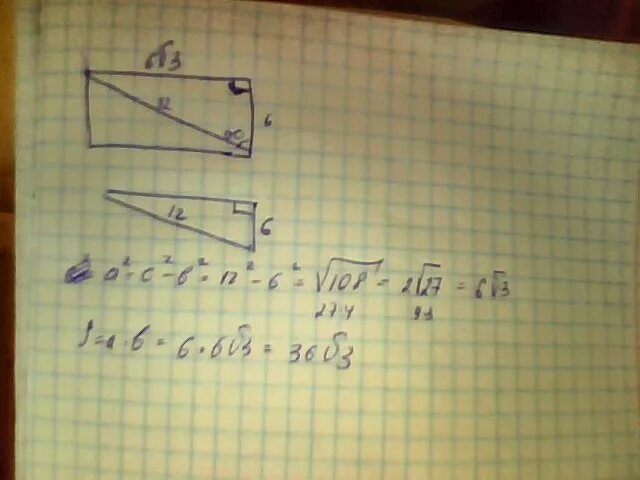 6√3
12
6
12
6
a² = c² - b² = 12² - 6² = √108 = 2√27 = 6√3
27·4
9·3
S = a · b = 6 · 6√3 = 36√3